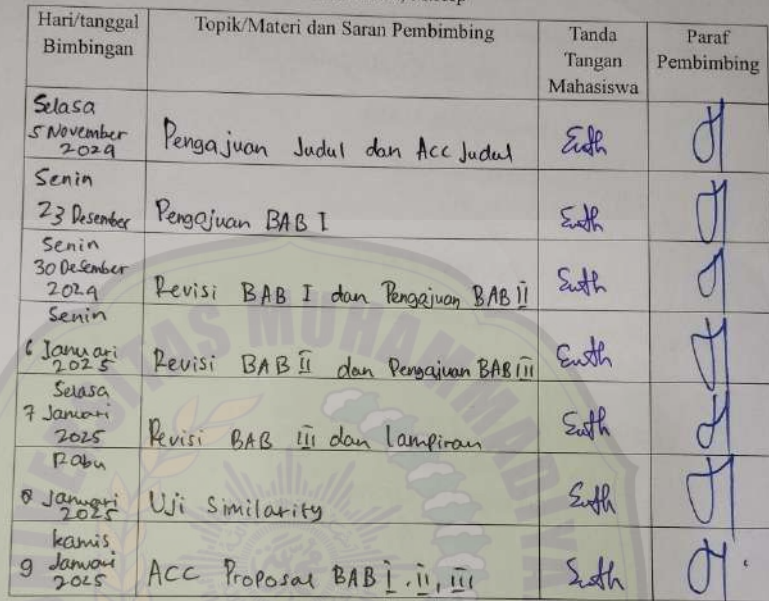 Hari/tanggal Bimbingan
Topik/Materi dan Saran Pembimbing
Tanda Tangan Mahasiswa
Paraf Pembimbing
Selasa
5 November
2024
Pengajuan Judul dan Acc Judul
Senin
23 Desember
Pengajuan BAB I
Senin
30 Desember
2024
Revisi BAB I dan Pengajuan BAB II
Senin
6 Januari
2025
Revisi BAB II dan Pengajuan BAB III
Selasa
7 Januari
2025
Revisi BAB III dan lampiran
Rabu
8 Januari
2025
Uji Similarity
kamis
9 Januari
2025
ACC Proposal BAB I, II, III